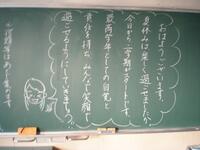 おはようございます。
夏休みは楽しく過ごせましたか。
今日から二学期がスタートです。
最高学年としての自覚と
責任を持ち、みんなで笑顔で
過ごせるようにしていきましょう。